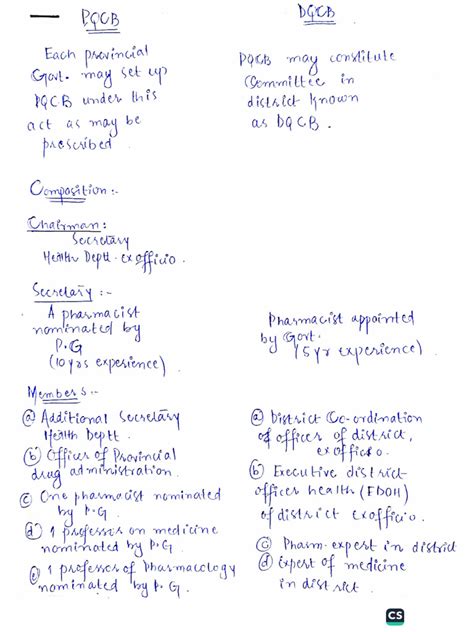 PQCB
Each provincial
Govt. may set up
PQCB under this
act as may be
prescribed.
Composition :-
Chairman :
Secretary
Health Deptt. exofficio.
Secretary :-
A pharmacist
nominated by
P.G
(10 yrs experience)
Members :-
(a) Additional Secretary
Health Deptt.
(b) Officer of Provincial
drug administration.
(c) One pharmacist nominated
by P.G
(d) 1 professor on medicine
nominated by P.G.
(e) 1 professor of Pharmacology
nominated by P.G.
DQCB
PQCB may constitute
Committee in
district known
as DQCB.
Pharmacist appointed
by Govt.
(5 yr experience)
(a) District Co-ordination
of officer of district,
exofficio.
(b) Executive district
officer health (EDOH)
of district exofficio.
(c) Pharm. expert in district
(d) Expert of medicine
in district.
CS